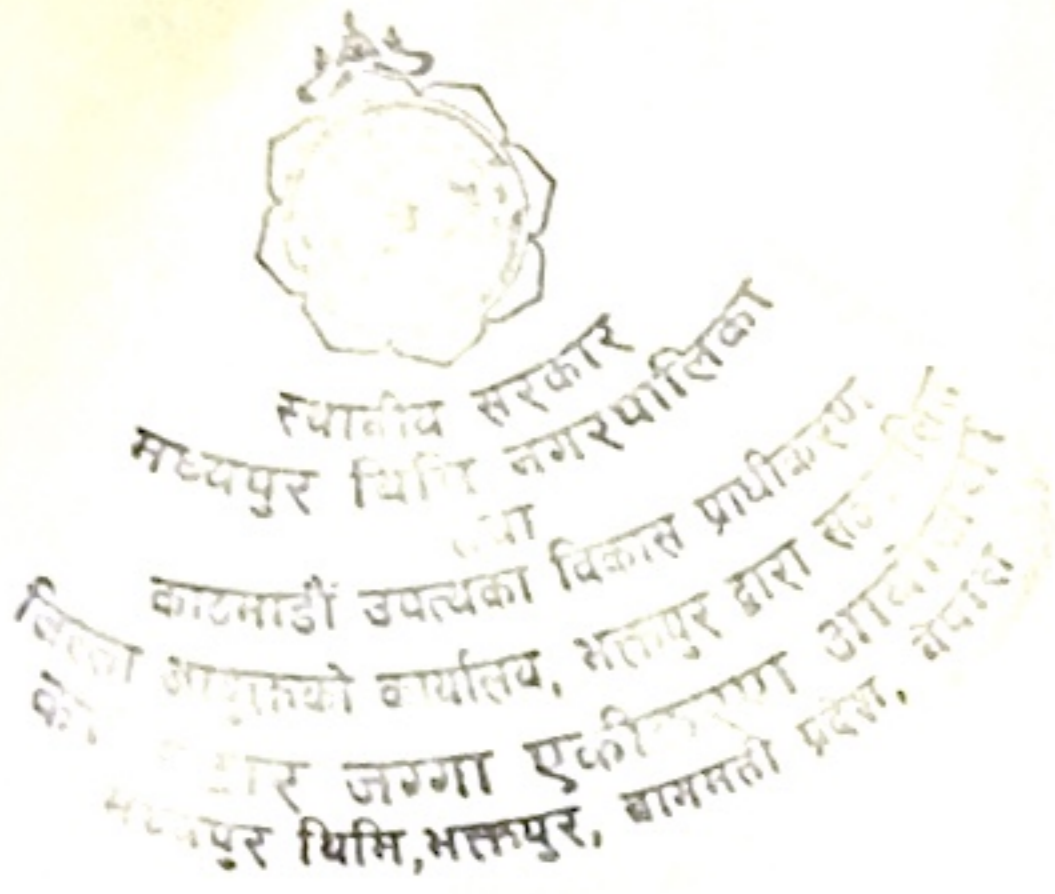 स्थानीय सरकार
मध्यपुर थिमि नगरपालिका
काठमाडौं उपत्यका विकास प्राधीकरण
जिल्ला आयुक्तको कार्यालय, भक्तपुर द्वारा
जग्गा एकीकरण
मध्यपुर थिमि,भक्तपुर, बागमती प्रदेश, नेपाल